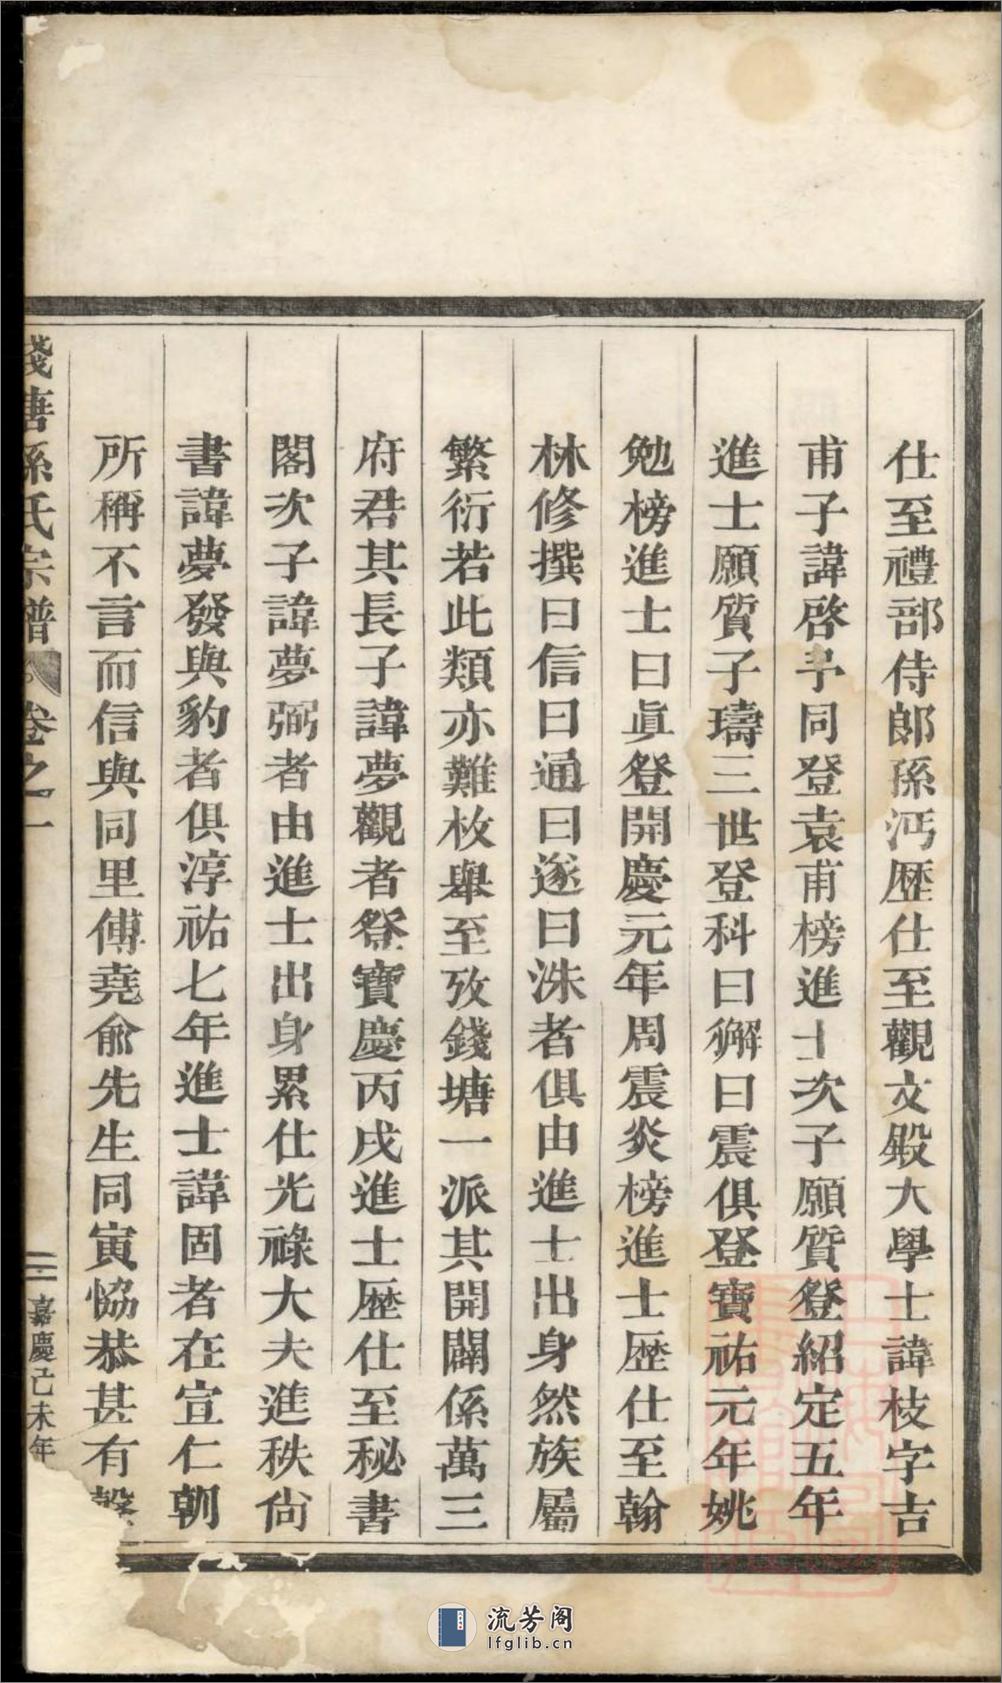 仕至禮部侍郎孫沔歷仕至觀文殿大學士諱枝字吉
甫子諱啓予同登袁甫榜進士次子願質登紹定五年
進士願質子璹三世登科曰獬曰震俱登寶祐元年姚
勉榜進士曰眞登開慶元年周震炎榜進士歷仕至翰
林修撰曰信曰通曰遂曰洙者俱由進士出身然族屬
繁衍若此類亦難枚舉至攷錢塘一派其開闢係萬三
府君其長子諱夢觀者登寶慶丙戌進士歷仕至秘書
閣次子諱夢弼者由進士出身累仕光祿大夫進秩尙
書諱夢發與豹者俱淳祐七年進士諱固者在宣仁朝
所稱不言而信與同里傅堯俞先生同寅恊恭甚有
錢唐孫氏宗譜 卷之一 二 嘉慶己未年
流芳阁
lfglib.cn